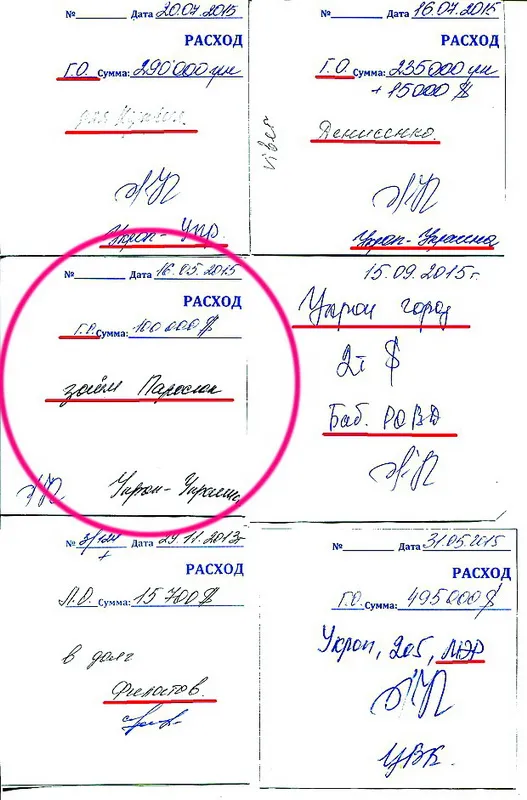 № Дата 20.07.2015
РАСХОД
Г.О. Сумма: 290 000 грн
для
Укроп-Укр.
№ Дата 16.07.2015
РАСХОД
Г.О. Сумма: 235000 грн
+ 15000 $
viber
Денисенко.
Укроп-Украина
№ Дата 16.05.2015
РАСХОД
Г.О. Сумма: 100 000 $
займ
Укроп-Украина
15.09.2015г.
Укроп город
2т $
Баб. РОВД
№ Дата 29.11.2013г
РАСХОД
Л.О. Сумма: 15 700 $
в долг
Филатов.
№ Дата 31.05.2015
РАСХОД
Г.О. Сумма: 495000 $
Укроп, 205, МЭР
ЦВК.